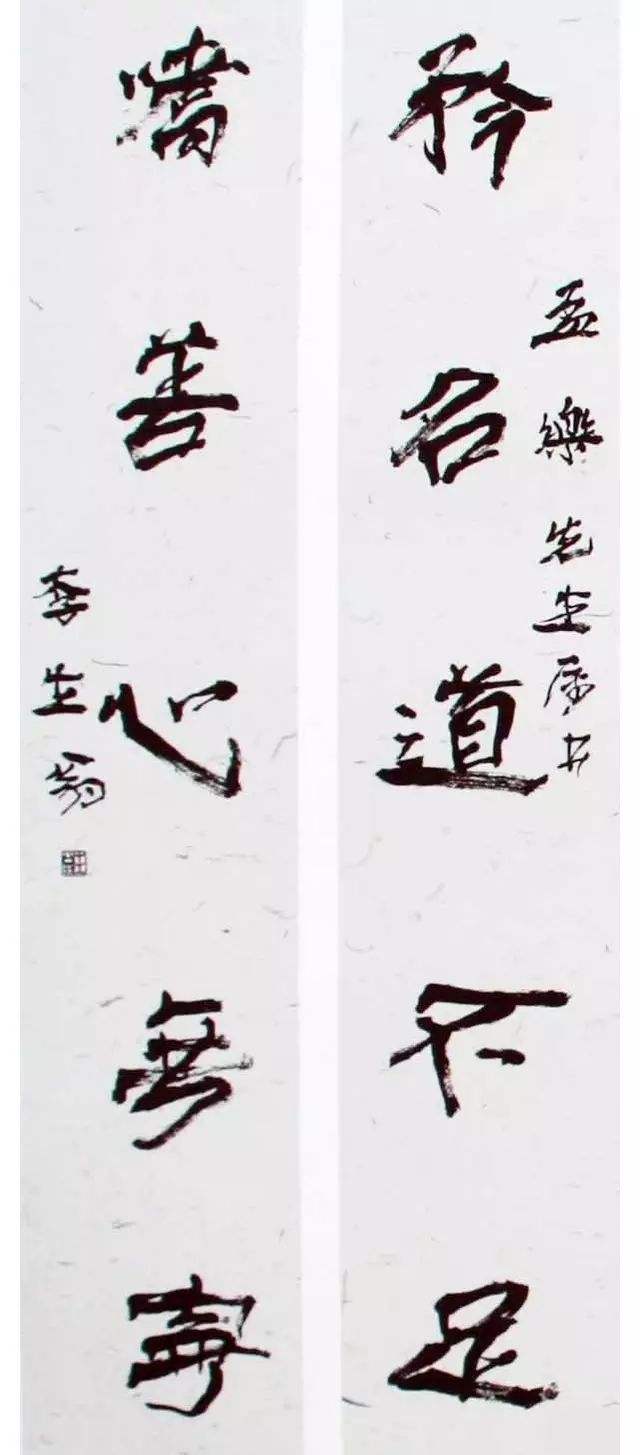 矜名道不足
孟樂先生屬書
嗜善心無寧
李生翁